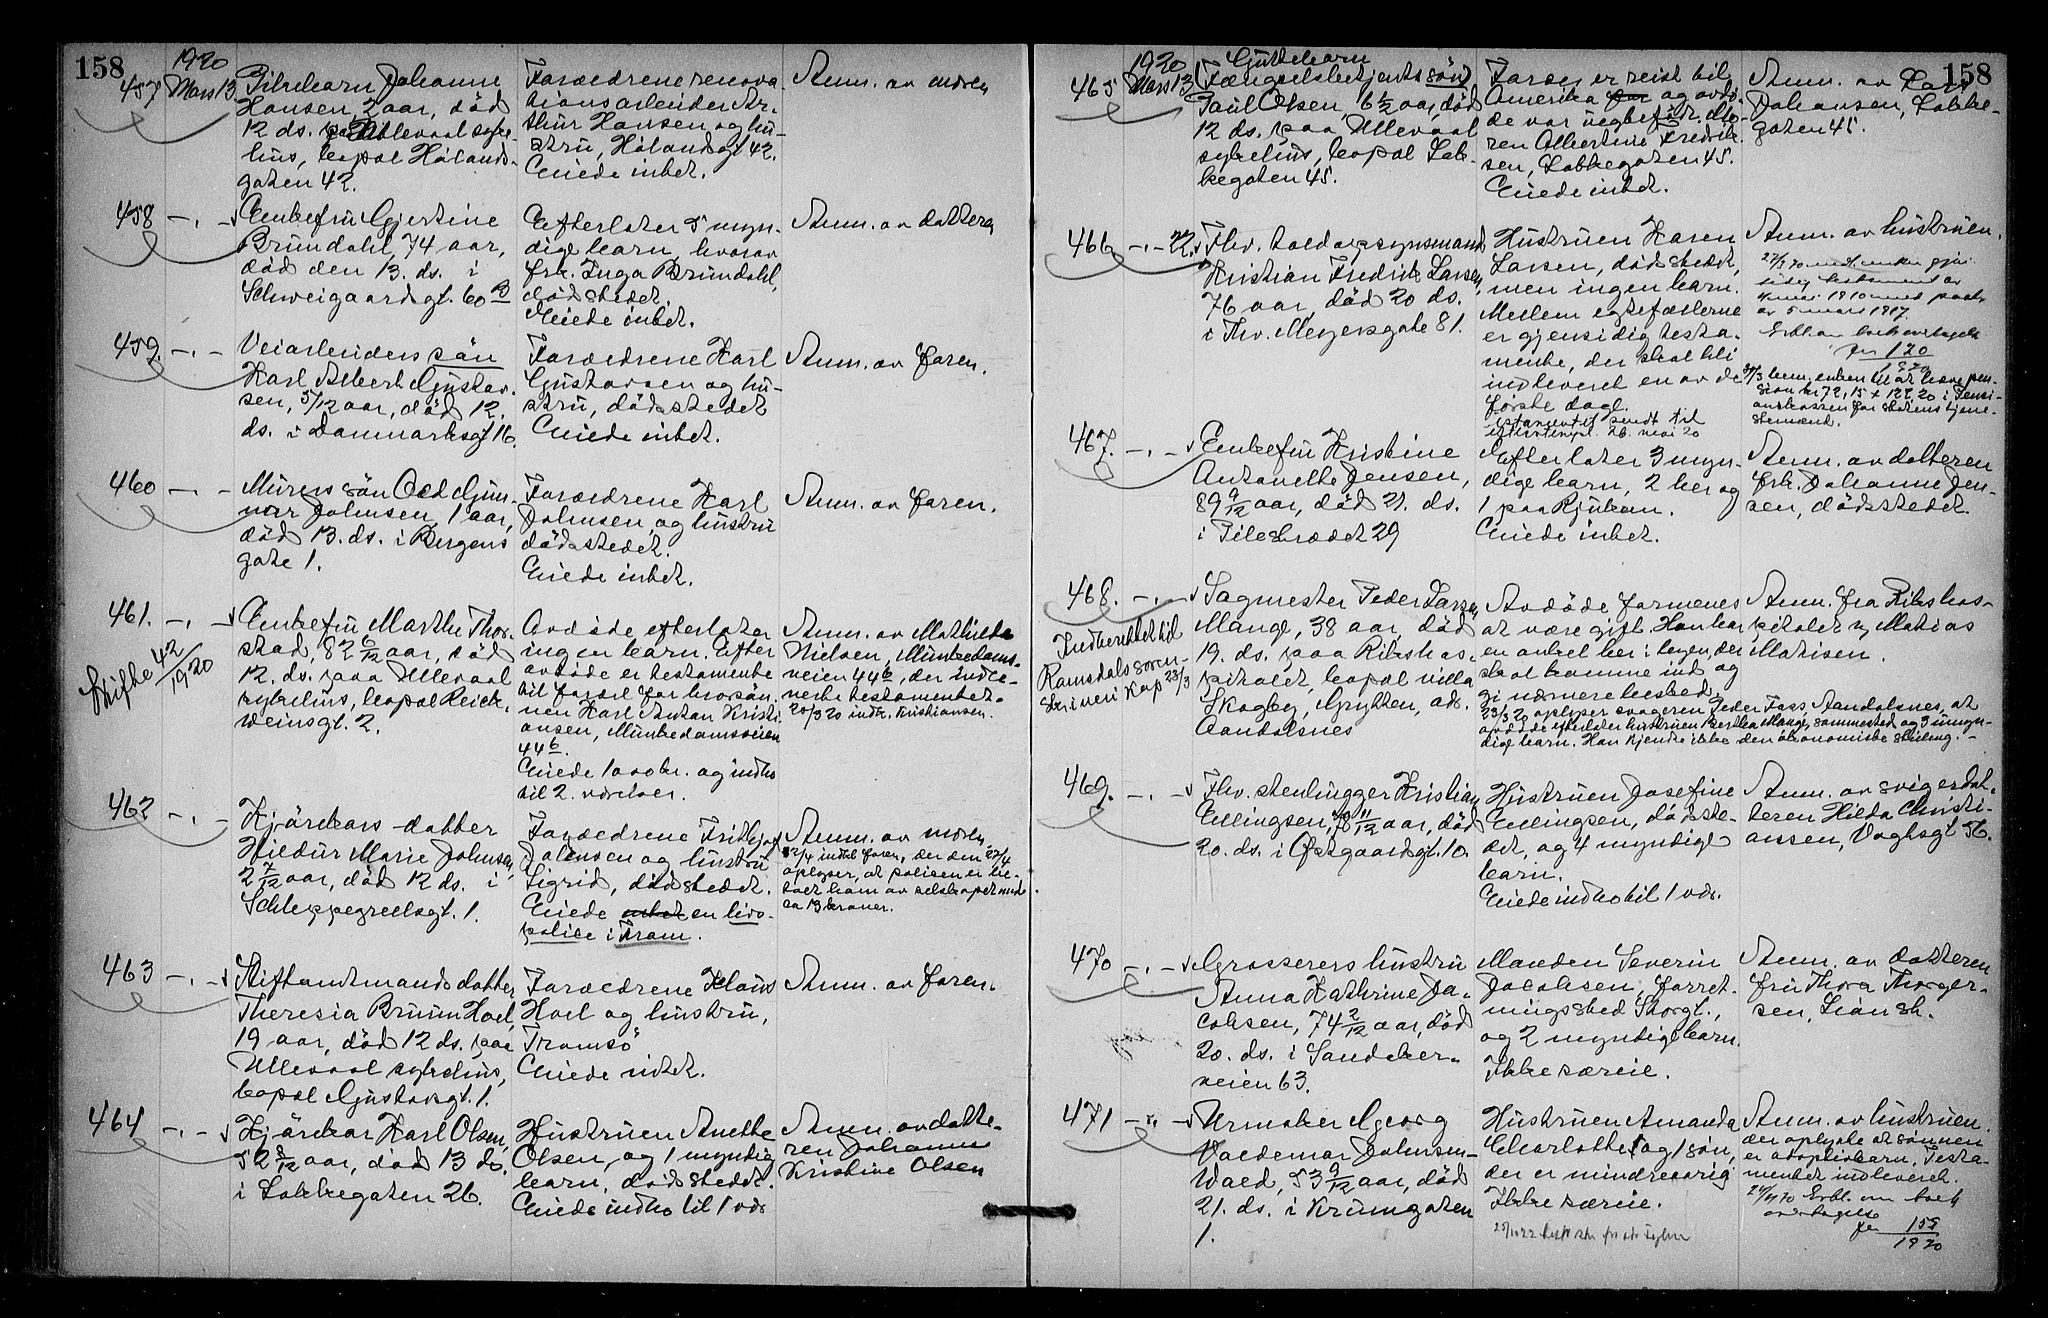 158
1920
457 Mars 13. Pikebarn Johanne
Hansen, 2 aar, död
12 ds. paa Ullevaal syke-
hus, bopæl Hölands-
gaten 42.
Forældrene renova-
tionsarbeider Ar-
thur Hansen og hu-
stru, Hölandsgt 42.
Eiede intet.
Anm. av moren
458 -"- Enkefru Gjertine
Brundahl, 74 aar,
död den 13. ds. i
Schweigaardsgt. 60 B
Efterlater 5 myn-
dige barn, hvorav
frk. Inga Brundahl,
dödsstedet.
Eiede intet.
Anm. av datteren
459. -"- Veiarbeiders sön
Karl Albert Gustav-
sen, 5/12 aar, död 12.
ds. i Danmarksgt 16.
Forældrene Karl
Gustavsen og hu-
stru, dödsstedet
Eiede intet.
Anm. av faren.
460 -"- Murers sön Odd Gun-
nar Johnsen, 1 aar,
död 13. ds. i Bergens
gate 1.
Forældrene Karl
Johnsen og hustru
dödsstedet.
Eiede intet.
Anm. av faren.
461. -"- Enkefru Marthe Thor-
stad, 82 6/12 aar, död
12. ds. paa Ullevaal
sykehus, bopæl Reich-
weinsgt. 2.
Skifte 42/1920
Avdöde efterlater
ingen barn. Efter
avdöde er testamente
til fordel for brorsön-
nen Karl Anton Kristi-
ansen, Munkedamsveien
44 b.
Eiede 1000 kr. og indbo
til 2 værelser.
Anm. av Mathilde
Nielsen, Munkedams-
veien 44 b, der indle-
verte testamentet.
20/3 20 indk. Kristiansen.
462 -"- Kjörekars datter
Hildur Marie Johnsen,
2 7/12 aar, död 12 ds. i
Schleppegrellsgt. 1.
Forældrene Fritjof
Johnsen og hustru
Sigrid, dödsstedet.
Eiede intet en livs-
police i Fram.
Anm. av moren.
12/4 indkl faren, der den 22/4
oplyser, at policen er be-
talt ham av selskapet med
ca 13 kroner.
463 -"- Stiftamtmands datter
Theresia Bruun Hoel,
19 aar, död 12 ds. paa
Ullevaal sykehus,
bopæl Gustavsgt. 1.
Forældrene Klaus
Hoel og hustru,
Tromsö
Eiede intet.
Anm. av faren.
464 -"- Kjörekar Karl Olsen,
52 8/12 aar, död 13 ds.
i Lakkegaten 26.
Hustruen Anethe
Olsen, og 1 myndig
barn, dödsstedet.
Eiede indbo til 1 vær.
Anm. av datte-
ren Johanne
Kristine Olsen
158
1920
465 Mars 13 Guttebarn
(Fængselsbetjents sön)
Paul Olsen, 6 1/2 aar, död
12 ds. paa Ullevaal
sykehus, bopæl Lak-
kegaten 45.
Faren er reist til
Amerika og avdö-
de var veg befodr. Mo-
ren Albertine Fredrik-
sen, Lakkegaten 45.
Eiede intet.
Anm. av Lars
Johansen, Lakke-
gaten 45.
466 -"- 22. Fhv. toldopsynsmand
Kristian Fredrik Larsen,
76 aar, död 20 ds.
i Thv. Meyersgate 81.
Hustruen Karen
Larsen, dödsstedet,
men ingen barn.
Mellem egtefællerne
er gjensidig testa-
mente, der skal bli
indleveret en av de
förste dage.
Testamentet sendt til
26. mai 20
Anm. av hustruen.
27/3 20 enken gjen-
sidig testament av
1910 med paat.
av 5 mars 1917.
Erkl. om boets overtagelse
jnr 120/1920
31/3 bem. enken til at hæve pen-
sion kr 72,15 + 122,20 i Pensi-
onskassen for statens tjene-
stemænd.
467. -"- Enkefru Kristine
Antonette Jensen,
89 9/12 aar, död 21. ds.
i Pilestrædet 29
Efterlater 3 myn-
dige barn, 2 her og
1 paa Rjukan.
Eiede intet.
Anm. av datteren
frk. Johanne Jen-
sen, dödsstedet.
468. -"- Sagmester Peder Larsen
Mange, 38 aar, död
19. ds. paa Rikshos-
pitalet, bopæl villa
Skogby, Grytten, adr.
Aandalsnes
Indberettet til
Romsdals soren-
skriveri Kap 23/3
Avdöde formenes
at være gift. Han har
en onkel her i byen, der
skal komme ind og
gi nærmere besked.
23/3 20 oplyser svogeren Peder Foss, Aandalsnes, at
avdöde efterlater hustruen Bertha Mange, sammested og 3 umyn-
dige barn. Han kjendte ikke den ökonomiske stilling. -
Anm. fra Rikshos-
pitalet v/ Matias
Matisen.
469. -"- Fhv. stenhugger Kristian
Ellingsen, 78 11/12 aar, död
20. ds. i Östgaardsgt. 10.
Hustruen Josefine
Ellingsen, dödste-
det, og 4 myndige
barn.
Eiede indbo til 1 vær.
Anm. av svigerdat-
teren Hilda Christi-
anssen, Vogtsgt 56.
470 -"- Grosserers hustru
Anna Kathrine Ja-
cobsen, 74 2/12 aar, död
20. ds. i Sandaker-
veien 63.
Manden Severin
Jacobsen, forret-
ningssted Storgt.,
og 2 myndige barn.
Ikke særeie.
Anm. av datteren
fru Thora Thorger-
sen, Lian st.
471 -"- Urmaker Georg
Valdemar Johnsen-
Wæld, 53 9/12 aar, död
21. ds. i Krumgaten
1.
Hustruen Amanda
Charlotte og 1 sön,
der er mindreaarig
Ikke særeie.
Anm. av hustruen.
der oplyste at sönnen
er adoptivbarn. Testa-
mentet indleveret.
Erkl. om boets
overtagelse
jnr 155/1920